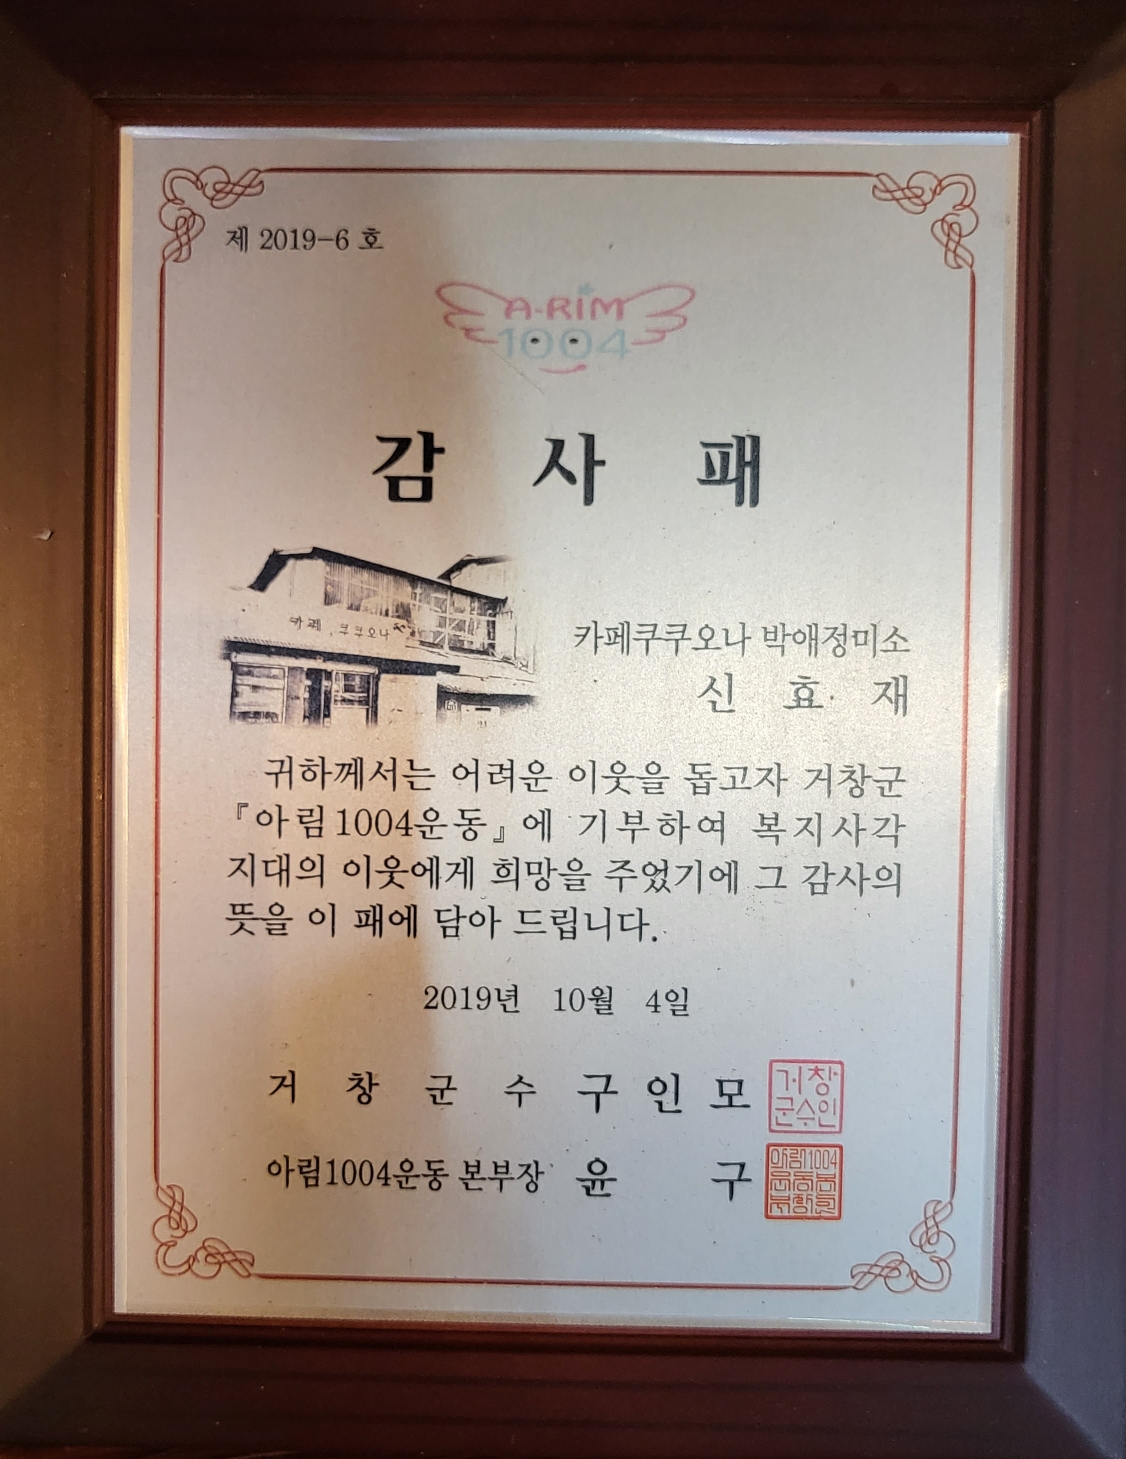 제 2019-6 호
A-RIM
1004
감 사 패
카페 쿠쿠오나
카페쿠쿠오나 박애정미소
신 효 재
귀하께서는 어려운 이웃을 돕고자 거창군
『아림1004운동』에 기부하여 복지사각
지대의 이웃에게 희망을 주었기에 그 감사의
뜻을 이 패에 담아 드립니다.
2019년 10월 4일
거 창 군 수 구 인 모
거창
군수인
아림1004운동 본부장 윤 구
아림1004
운동본
부장인